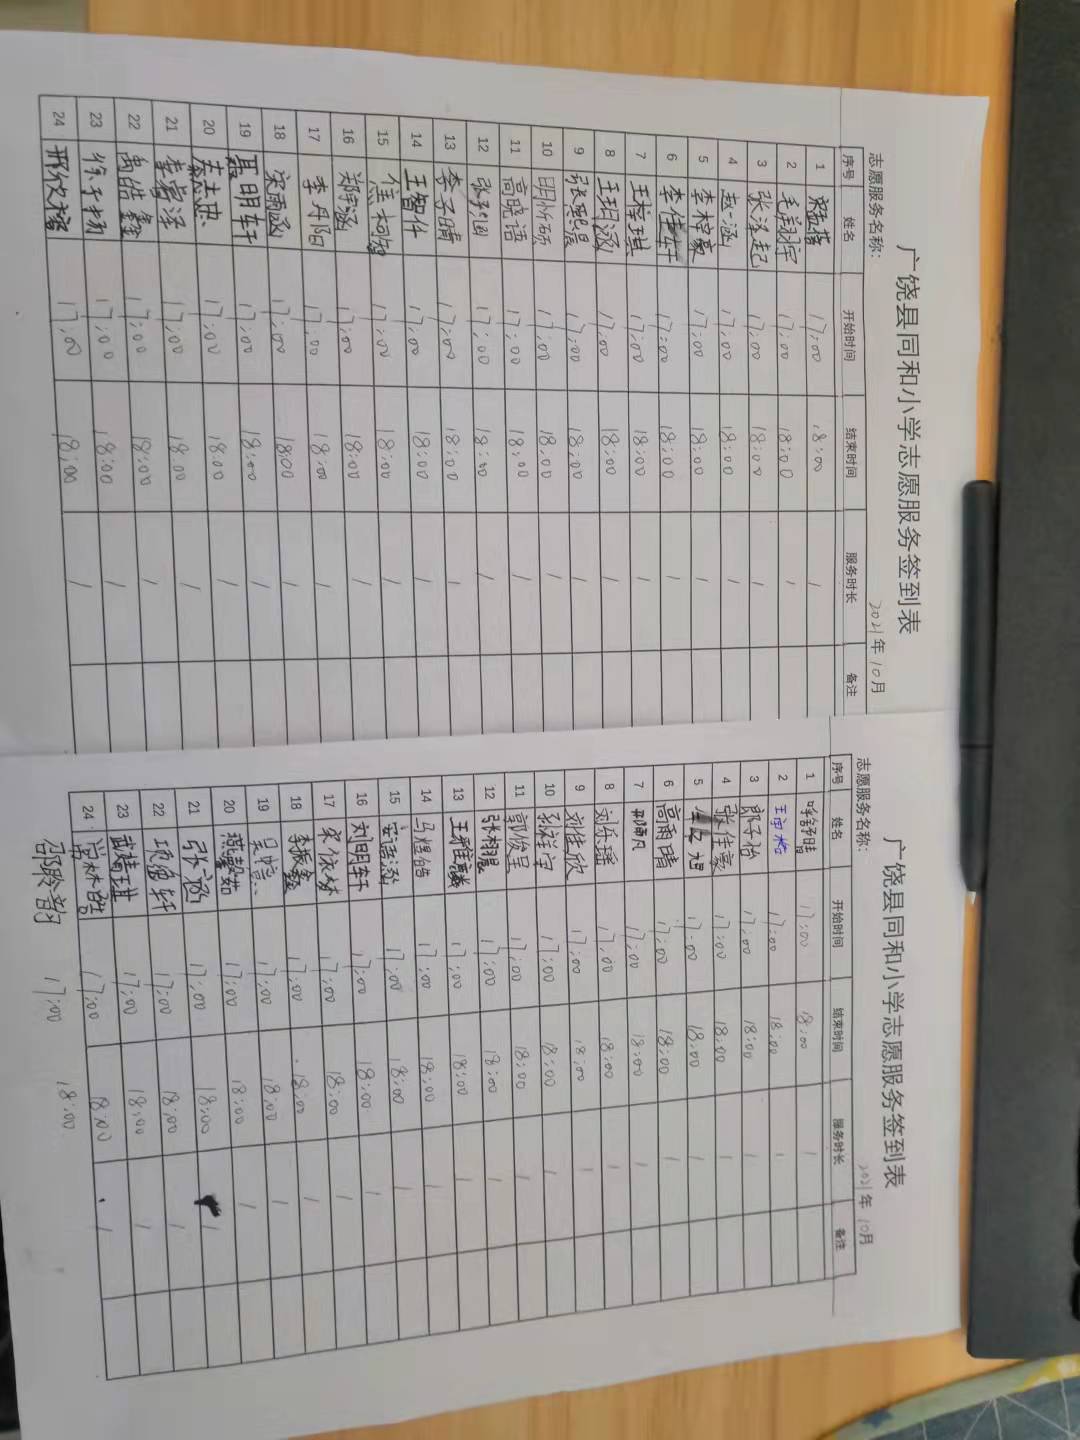 广饶县同和小学志愿服务签到表
志愿服务名称： 2021年10月
序号 姓名 开始时间 结束时间 服务时长 备注
1 17:00 18:00 1
2 毛翔宇 17:00 18:00 1
3 张泽起 17:00 18:00 1
4 赵一涵 17:00 18:00 1
5 李梓豪 17:00 18:00 1
6 李佳轩 17:00 18:00 1
7 王梓琪 17:00 18:00 1
8 王玥涵 17:00 18:00 1
9 张熙晨 17:00 18:00 1
10 明忻硕 17:00 18:00 1
11 高晓语 17:00 18:00 1
12 17:00 18:00 1
13 李子晴 17:00 18:00 1
14 王智仟 17:00 18:00 1
15 17:00 18:00 1
16 郑宇涵 17:00 18:00 1
17 李丹阳 17:00 18:00 1
18 宋雨涵 17:00 18:00 1
19 聂明轩 17:00 18:00 1
20 17:00 18:00 1
21 17:00 18:00 1
22 禹皓鑫 17:00 18:00 1
23 徐子扬 17:00 18:00 1
24 17:00 18:00 1
广饶县同和小学志愿服务签到表
志愿服务名称： 2021年10月
序号 姓名 开始时间 结束时间 服务时长 备注
1 17:00 18:00 1
2 17:00 18:00 1
3 郎子怡 17:00 18:00 1
4 张佳豪 17:00 18:00 1
5 17:00 18:00 1
6 高雨晴 17:00 18:00 1
7 17:00 18:00 1
8 刘乐瑶 17:00 18:00 1
9 刘佳欣 17:00 18:00 1
10 17:00 18:00 1
11 郭俊呈 17:00 18:00 1
12 张栩琨 17:00 18:00 1
13 17:00 18:00 1
14 马煜皓 17:00 18:00 1
15 17:00 18:00 1
16 刘明轩 17:00 18:00 1
17 宋依林 17:00 18:00 1
18 李振鑫 17:00 18:00 1
19 17:00 18:00 1
20 燕馨茹 17:00 18:00 1
21 张涵 17:00 18:00 1
22 17:00 18:00 1
23 17:00 18:00 1
24 17:00 18:00 1
邵聆韵 17:00 18:00